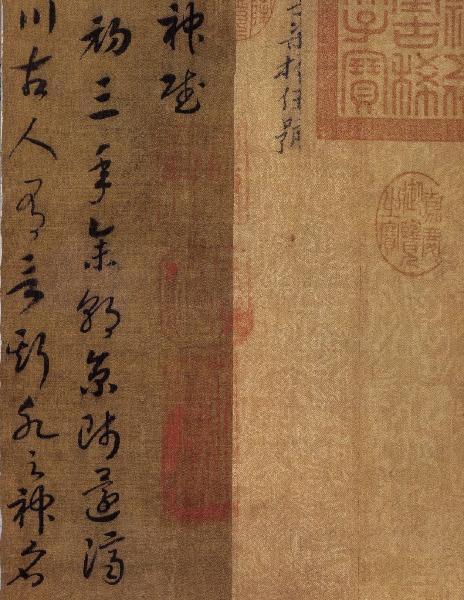 古稀
子寶
嘉慶
御覽
之寶
神賦
初三年余朝京師還濟
川古人有言斯水之神名